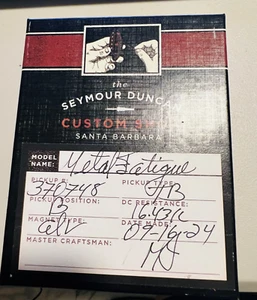 the
SEYMOUR DUNCAN
CUSTOM SHOP
SANTA BARBARA
MODEL NAME: Metal Fatigue
PICKUP #: PICKUP TYPE:
370748
PICKUP POSITION: DC RESISTANCE:
B 16.43k
MAGNET TYPE: DATE MADE:
09-19-24
MASTER CRAFTSMAN: MJ